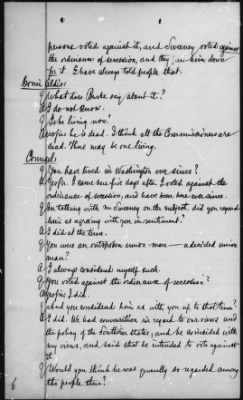 persons voted against it, and Sweeney voted against
the ordinance of secession, and they
for it. I have always told people that.
Comr. Aldis:
Q What does Burke say about it?
A I do not know.
Q Is he living now?
A No sir he is dead. I think all the Commissioners are
dead. There may be one living.
Counsel:
Q You have lived in Washington ever since?
A Yes sir. I came here five days after I voted against the
ordinance of secession, and have been here ever since.
Q In talking with Mr Sweeney on the subject, did you regard
him as agreeing with you in sentiment?
A I did at the time.
Q You were an outspoken union man — a decided union
man?
A I always considered myself such.
Q You voted against the ordinance of secession?
A Yes sir I did.
Q And you considered him as with you up to that time?
A I did. We had conversation in regard to our views and
the policy of the Southern states, and he coincided with
my views, and said that he intended to vote against
it.
Q Would you think he was generally so regarded among
the people there?
6